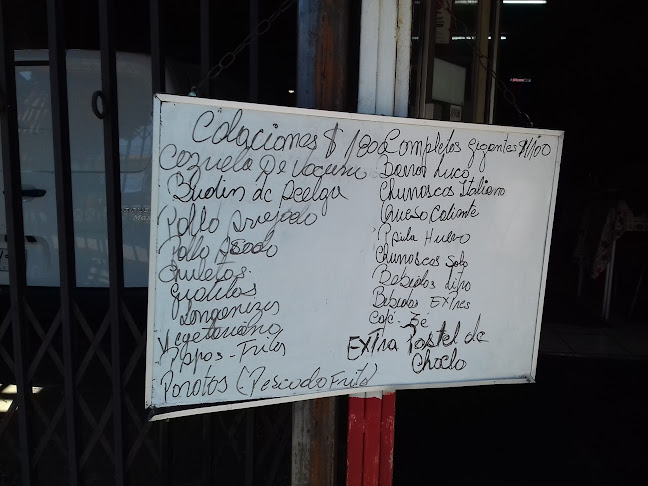 Colaciones $1800
Cazuela De Vacuno
Budin de Acelga
Pollo Arvejado
Pollo Asado
Chuletas
Gorditos
Longanizas
Vegetariano
Papas-Fritas
Porotos (Pescado Frito)
Completos gigantes $1100
Barros Luco
Churrascos Italiano
Queso Caliente
Huevo
Churrascos Solo
Bebidas litro
Bebidas Extres
Café-Té
Extra Pastel de
Choclo